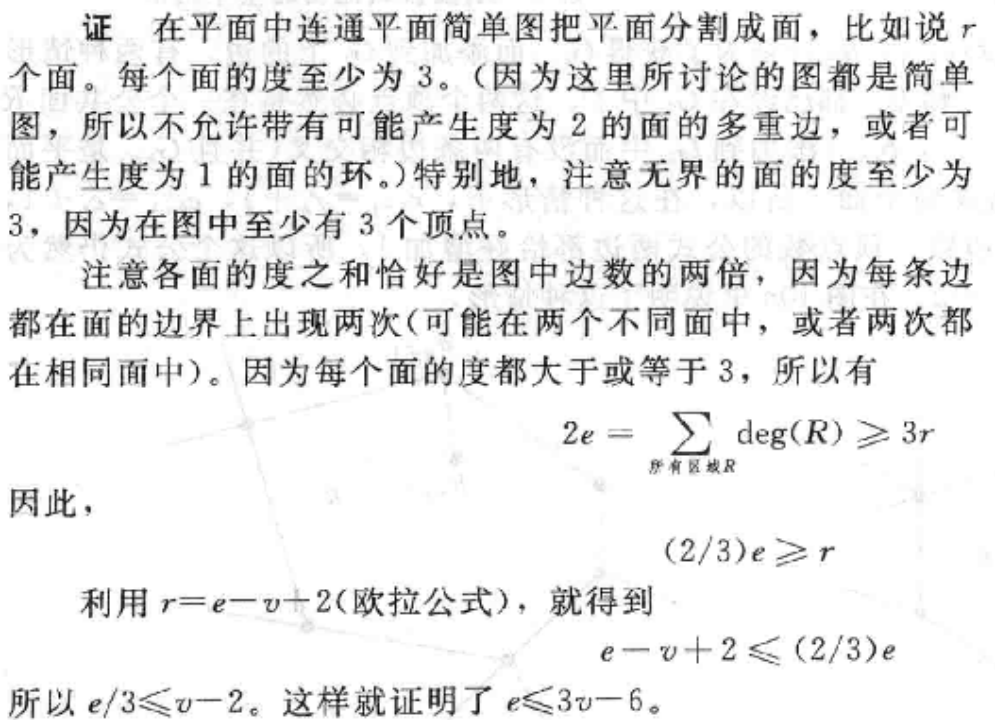 证 在平面中连通平面简单图把平面分割成面，比如说 r
个面。每个面的度至少为 3。(因为这里所讨论的图都是简单
图，所以不允许带有可能产生度为 2 的面的多重边，或者可
能产生度为 1 的面的环。)特别地，注意无界的面的度至少为
3，因为在图中至少有 3 个顶点。
注意各面的度之和恰好是图中边数的两倍，因为每条边
都在面的边界上出现两次(可能在两个不同面中，或者两次都
在相同面中)。因为每个面的度都大于或等于 3，所以有
2e = ∑ deg(R) ⩾ 3r
所有区域R
因此，
(2/3)e ⩾ r
利用 r=e−v+2(欧拉公式)，就得到
e − v + 2 ⩽ (2/3)e
所以 e/3⩽v−2。这样就证明了 e⩽3v−6。